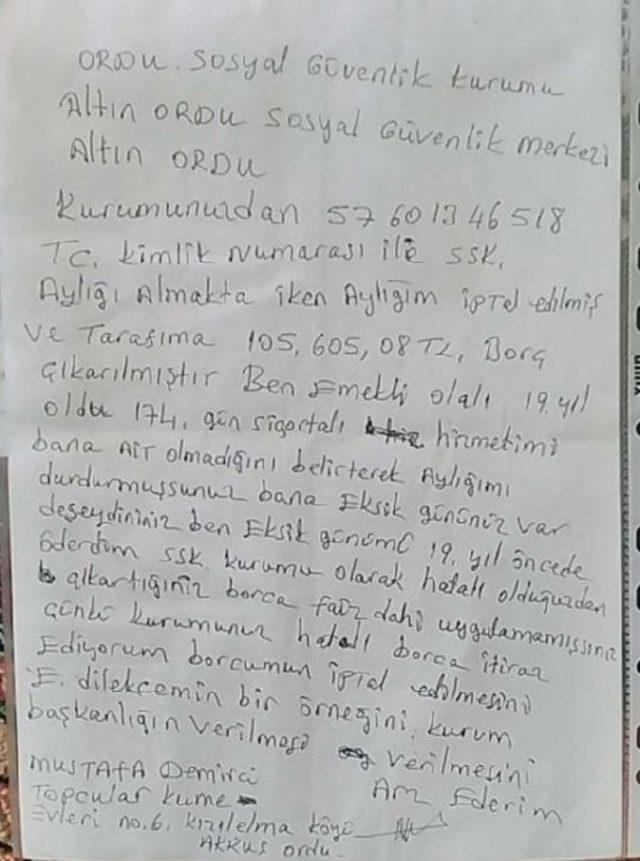 ORDU. Sosyal Güvenlik kurumu
Altın ORDU Sosyal Güvenlik merkezi
Altın ORDU
Kurumunuzdan 57601346518
TC. kimlik numarası ile SSK,
Aylığı Almakta iken Aylığım iptal edilmiş
ve Tarafıma 105,605,08 TL, Borç
çıkarılmıştır Ben Emekli olalı 19. yıl
oldu 174. gün sigortalı hizmetimi
bana AİT olmadığını belirterek Aylığımı
durdurmuşsunuz bana Eksik gününüz var
deseydininiz ben Eksik günümü 19. yıl öncede
öderdim SSK. kurumu olarak hatalı olduğuzdan
çıkartığınız borca faiz dahi uygulamamışsınız
çünkü kurumunuz hatalı borca itiraz
Ediyorum borcumun iptal edilmesini
E. dilekcemin bir örneğini, kurum
başkanlığın verilmesi verilmesini
Arz Ederim
MUSTAFA Demirci
Topcular kume
Evleri no.6. kızılelma köyü
AKKUŞ ordu.